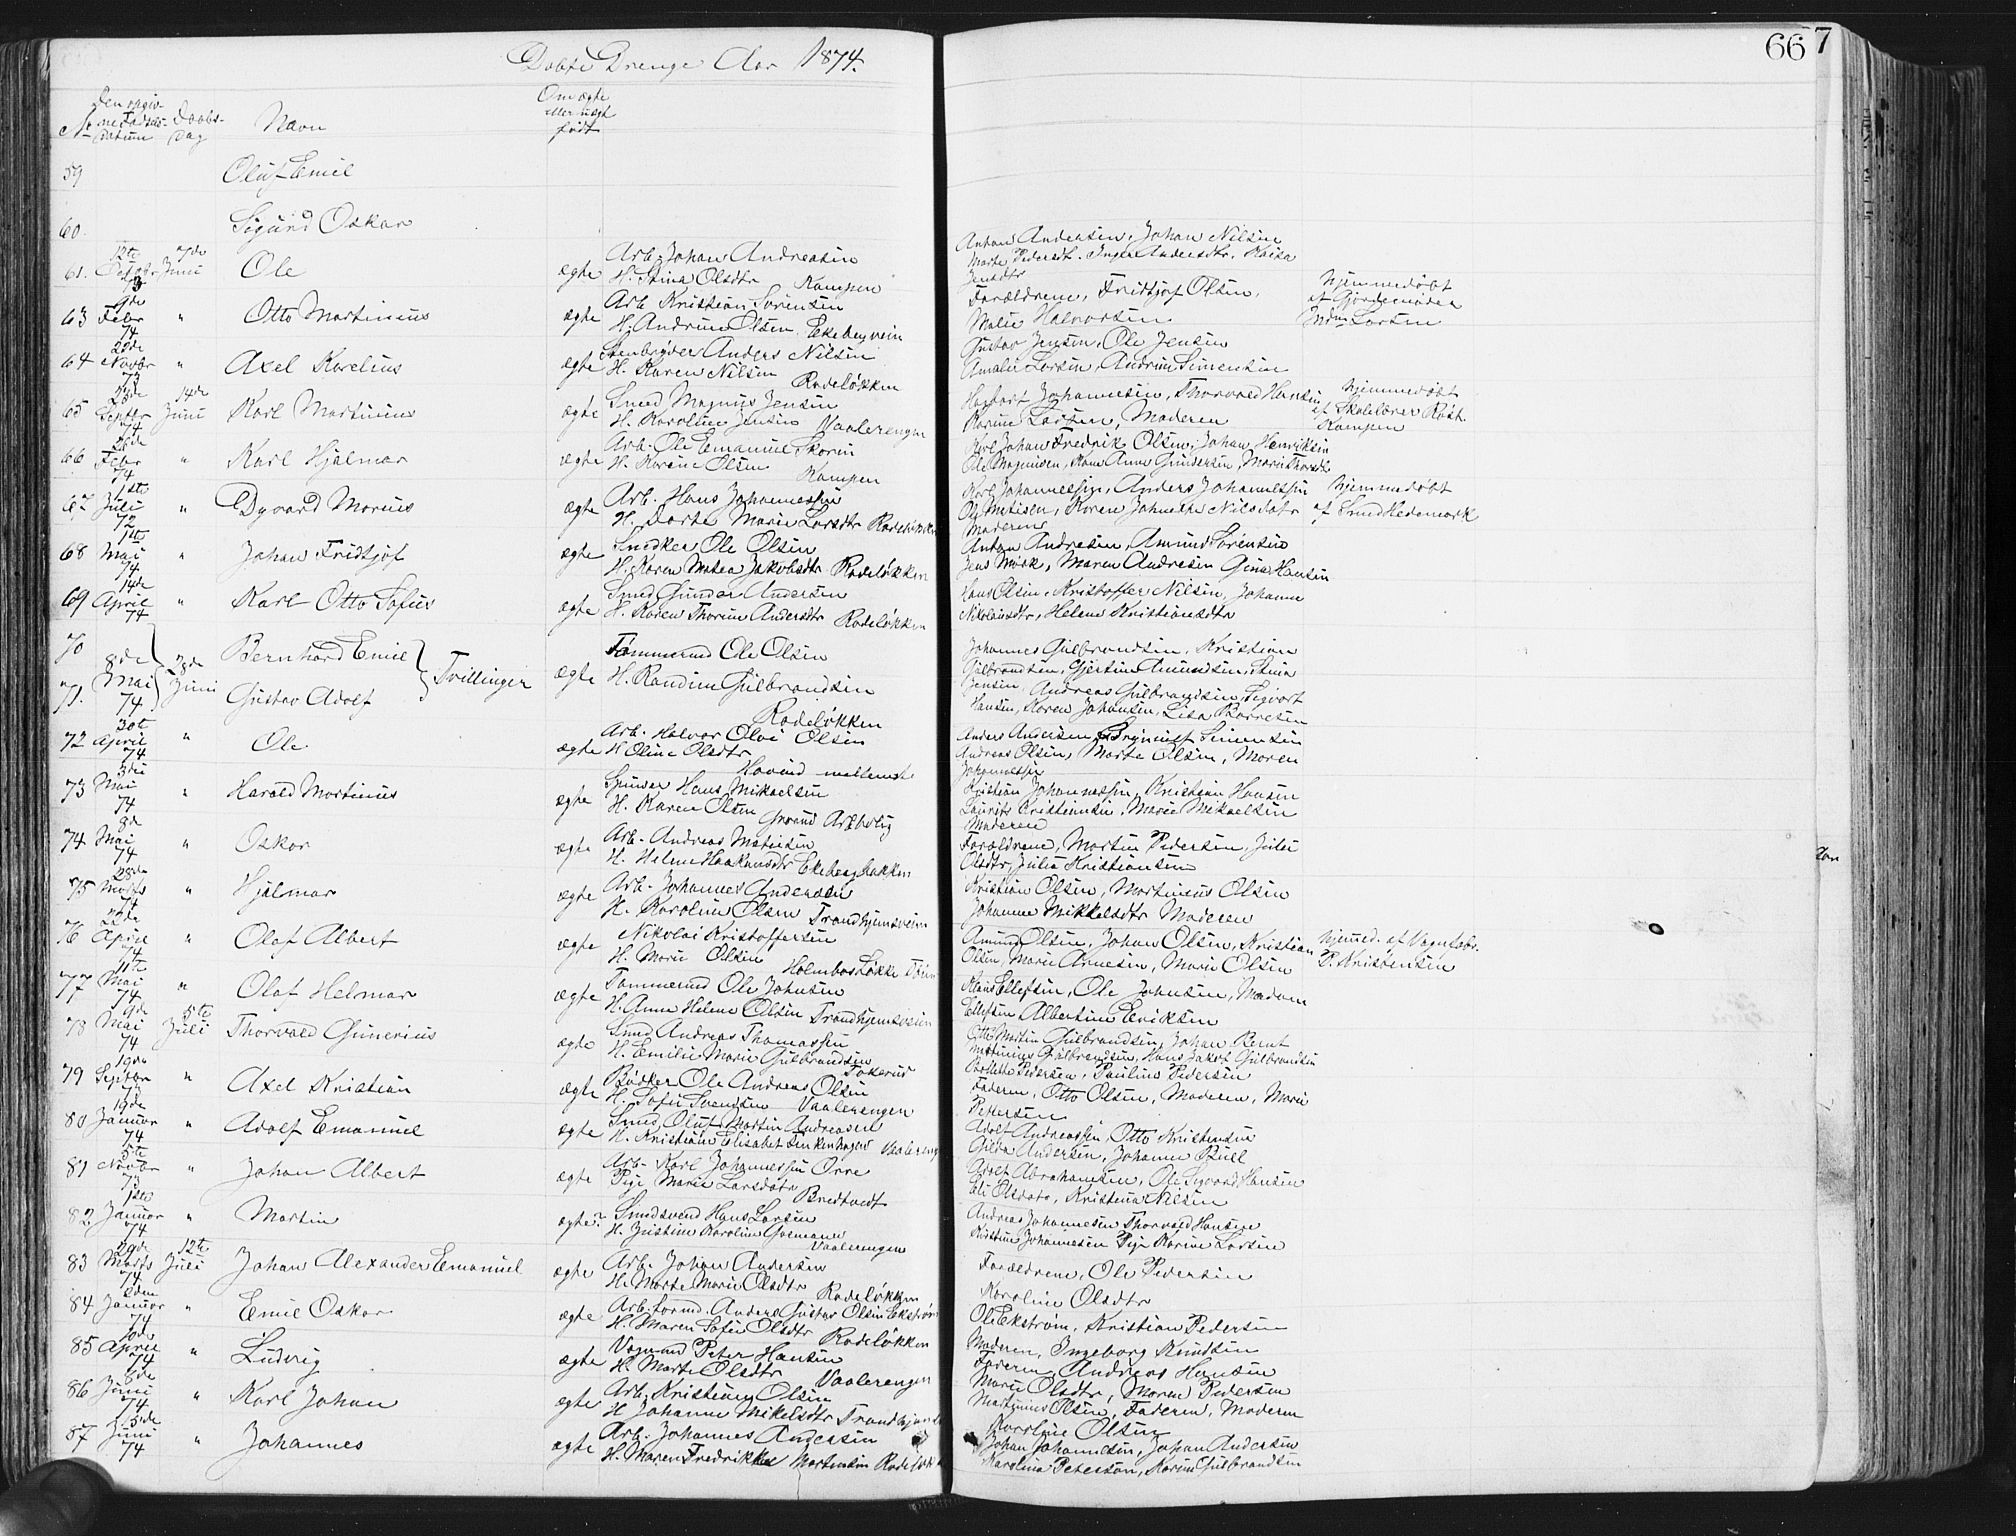 Døbte Drenge Aar 1874.
66
7
Navn
Om ægte
eller uægte
født
59 Oluf Emil
60. Sigurd Oskar
61. 12te Octobr 73 7de Juni Ole ægte Arb. Johan Andreasin
H. Stina Olsdtr Kampen
Anton Andersin, Johan Nilsin
Marte Pedersdt. Inger Andersdtr. Kaisa
Jensdtr
63 9de Febr 74 " Otto Martinius ægte Arb. Kristian Sørensin
H. Andrine Olsen. Ekebergvein
Forældrene, Fridtjof Olsin,
Malie Halvorsen
Hjemmedøbt
af Gjordemoder
Larsen
64 22de Novbr 73 " Axel Korelius ægte Stenbryder Anders Nilsin
H. Karen Nilsin Rodeløkken
Gustav Jensin, Ole Jensin
Amalie Larsin, Andrine Simensin
65 Septbr 14de Juni Karl Martinius ægte Smed Magnus Jensin
H. Karoline Jensin Vaalerengen
Johannesin, Thorvald Hansin
Karine Larsen, Moderen
Hjemmedøbt
af Skolelærer Røst.
Kampen
66 26de Febr 74 " Karl Hjalmar ægte Arb. Ole Emanuel Skorin
H. Korine Olsen
Kampen
Karl Johan Fredrik Olsen, Johan Henriksin
Ole Magnusen, Anne Gundersin, Marie
67 1ste Juli 72 " Dyvard Marius ægte Arb. Hans Johannessin
H. Dorte Marie Larsdtr Rodeløkken
Karl Johannessin, Anders Johannessin
Karen Nilsdatr
Moderen
Hjemmedøbt
af Smed Hedemark
68 1ste Mai 74 " Johan Fridtjof ægte Snedker Ole Olsin
H. Karen Matea Jakobsdtr Rodeløkken
Anton Andresin, Amund Sørensin
Jens Mørk, Maren Andresin Gina Hansin
69 14de April 74 " Karl Otto Sofus ægte Smed Gunder Andersin
H. Karen Thorine Andersdtr Rodeløkken
Hans Olsin, Kristoffer Nilsin, Johanne
Nikolaisdtr, Helene Kristiansdtr
70 Bernhard Emil
71. 8de Mai 74 28de Juni Gustav Adolf Tvillinger ægte Tømmermd Ole Olsin
H. Randine Gulbrandsin
Rodeløkken
Johannes Gulbrandsin, Kristian
Gulbrandsin, Gjertine Amundsin, Stina
Jensin, Andreas Gulbrandsin, Sigvart
Hansin, Karen Johansin, Lisa Borresin
72 30te April 74 " Ole ægte Arb. Halvor Olai Olsin
H. Oline Olsdtr
Hovind mellemste
Anders Andersin, Simensin
Andreas Olsin, Marte Olsin, Maren
Johannessin
73 3die Mai 74 " Harald Martinius ægte Spinder Hans Mikaelsin
H. Karen Olsin
Kristian Johannessin, Kristian Hansin
Laurits Cristiansin, Marie Mikaelsin
Moderen
74 8de Mai 74 " Oskar ægte Arb. Andreas Matisin
H. Helene Haakensdtr Ekebergbakken
Forældrene, Martin Pedersin, Julie
Olsdtr, Julia Kristiansin
75 28de Marts 74 " Hjalmar ægte Arb. Johannes Andersin
H. Karoline Olsin Trondhjemsveien
Kristian Olsin, Martinius Olsin
Johanne Mikkelsdtr Moderen
76 22de April 74 " Olaf Albert ægte Nikolai Kristoffersin
H. Marie Olsin
Holmboe Løkke Tøien
Amund Olsin, Johan Olsin, Kristian
Olsin, Marie Arnesin, Marie Olsin
Hjemed. af Vognfabr.
P. Kristensin
77 11te Mai 74 " Olaf Helmar ægte Tømmermd Ole Johnsin
H. Anne Helene Olsin Trondhjemsveien
Klaus Ellefsin, Ole Johnsin, Moderen
Ellefsin Albertine Eriksin
78 9de Mai 74 5te Juli Thorvald Gunerius ægte Smed Andreas Thomassin
H. Emilie Marie Gulbrandsin
Otto Martin Gulbrandsin, Johan Bernt
Martinius Gulbrandsin, Hans Jakob Gulbrandsin
Pedersen, Pauline Pedersin
79 19de Septbr " Axel Kristian ægte Bødker Ole Andreas Olsin
H. Sofie Svendsin Vaalerengen
Faderen, Otto Olsin, Moderen, Marie
Pettersin
80 19de Januar 74 " Adolf Emanuel ægte Smed Oluf Martin Andreasen
H. Kristiane Elisabet Vaalereng
Adolf Andreassin, Otto Kristensin
Gilda Andersin, Johanne Bull
81 5te Novbr 73 " Johan Albert ægte Arb. Karl Johannessin Orre
Pige Marie Larsdatr
Bredtvedt
Adolf Abrahamsin, Ole Sigvard Hansin
Olsdatr, Kristina Nilsin
82 1ste Januar 74 " Martin ægte? Smedsvend Hans Larsin
H. Justine Karoline Gormann
Vaalerengen
Andreas Johannesin Thorvald Hansin
Kristine Johannesin Pige Karine Larsin
83 29de Marts 74 12te Juli Johan Alexander Emanuel ægte Arb. Johan Andersin
H. Marte Marie Olsdtr Rodeløkken
Forældrene, Ole Pedersin
Karoline Olsdtr
84 2den Januar 74 " Emil Oskar ægte Arb.formd. Anders Gustav Olsin Ekstrøm
H. Maren Sofie Olsdtr Rodeløkken
Ole Ekstrøm, Kristian Pedersin
Moderen, Ingeborg Knudsin
85 10de April 74 " Ludvig ægte Vognmd Peter Hansin
H. Marte Olsdtr Vaalerengen
Faderen, Andreas Hansin
Marie Olsdtr, Maren Pedersin
86 8de Juni 74 " Karl Johan ægte Arb. Kristian Olsin
H Johanne Mikelsdtr Trondhjems
Martinius Olsin, Faderen, Moderen
Karoline Olsin
87 5de Juni 74 " Johannes ægte Arb. Johannes Andersin
H. Maren Fredrikke Martinsin Rodeløkk
Johan Johannesin, Johan Andersin
Karolina Peterson, Karine Gulbrandsin